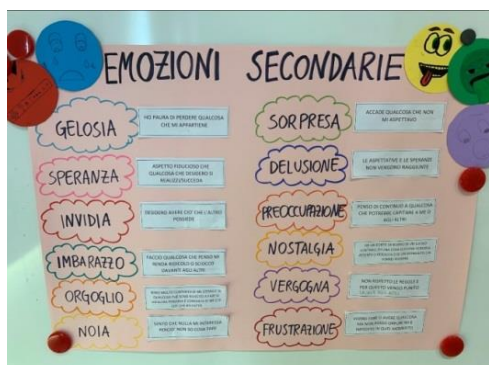 EMOZIONI SECONDARIE
GELOSIA
HO PAURA DI PERDERE QUALCOSA
CHE MI APPARTIENE
SPERANZA
ASPETTO FIDUCIOSO CHE
QUALCOSA CHE DESIDERO SI
REALIZZI/SUCCEDA
INVIDIA
DESIDERO AVERE CIO' CHE L'ALTRO
POSSIEDE
IMBARAZZO
FACCIO QUALCOSA CHE PENSO MI
RENDA RIDICOLO O SCIOCCO
DAVANTI AGLI ALTRI
ORGOGLIO
NOIA
SENTO CHE NULLA MI INTERESSA
PERCIO' NON SO COSA FARE
SORPRESA
ACCADE QUALCOSA CHE NON
MI ASPETTAVO
DELUSIONE
LE ASPETTATIVE E LE SPERANZE
NON VENGONO RAGGIUNTE
PREOCCUPAZIONE
PENSO DI CONTINUO A QUALCOSA
CHE POTREBBE CAPITARE A ME O
AGLI ALTRI
NOSTALGIA
VERGOGNA
NON RISPETTO LE REGOLE E
PER QUESTO VENGO PUNITO
FRUSTRAZIONE